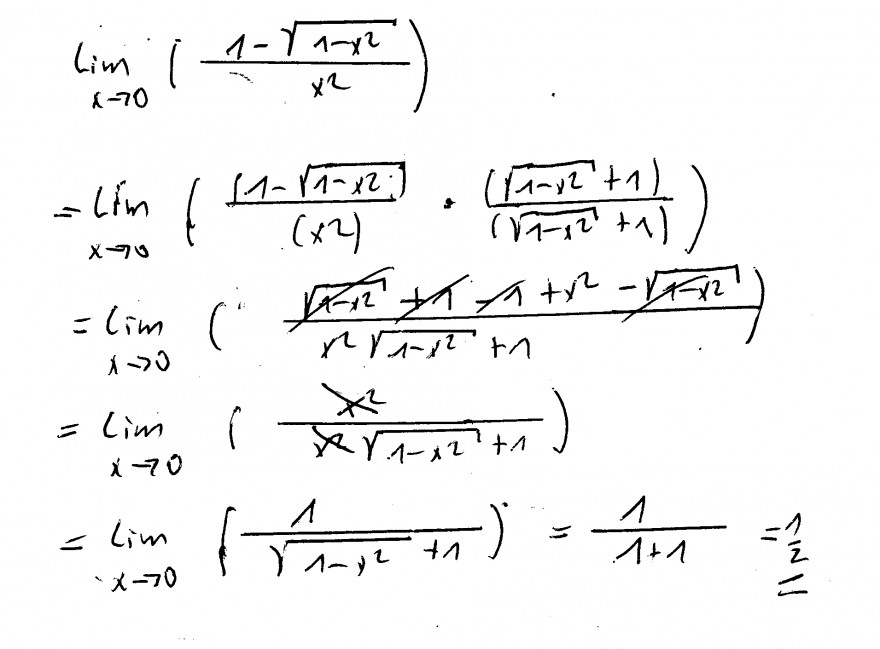 lim x→0 ( (1-√(1-x²)) / x² )
= lim x→0 ( (1-√(1-x²)) / (x²) · (√(1-x²) +1) / (√(1-x²) +1) )
= lim x→0 ( (√(1-x²) +1 -1 +x² -√(1-x²)) / (x² √(1-x²) +1) )
= lim x→0 ( x² / (x² √(1-x²) +1) )
= lim x→0 ( 1 / (√(1-x²) +1) ) = 1 / (1+1) = 1/2